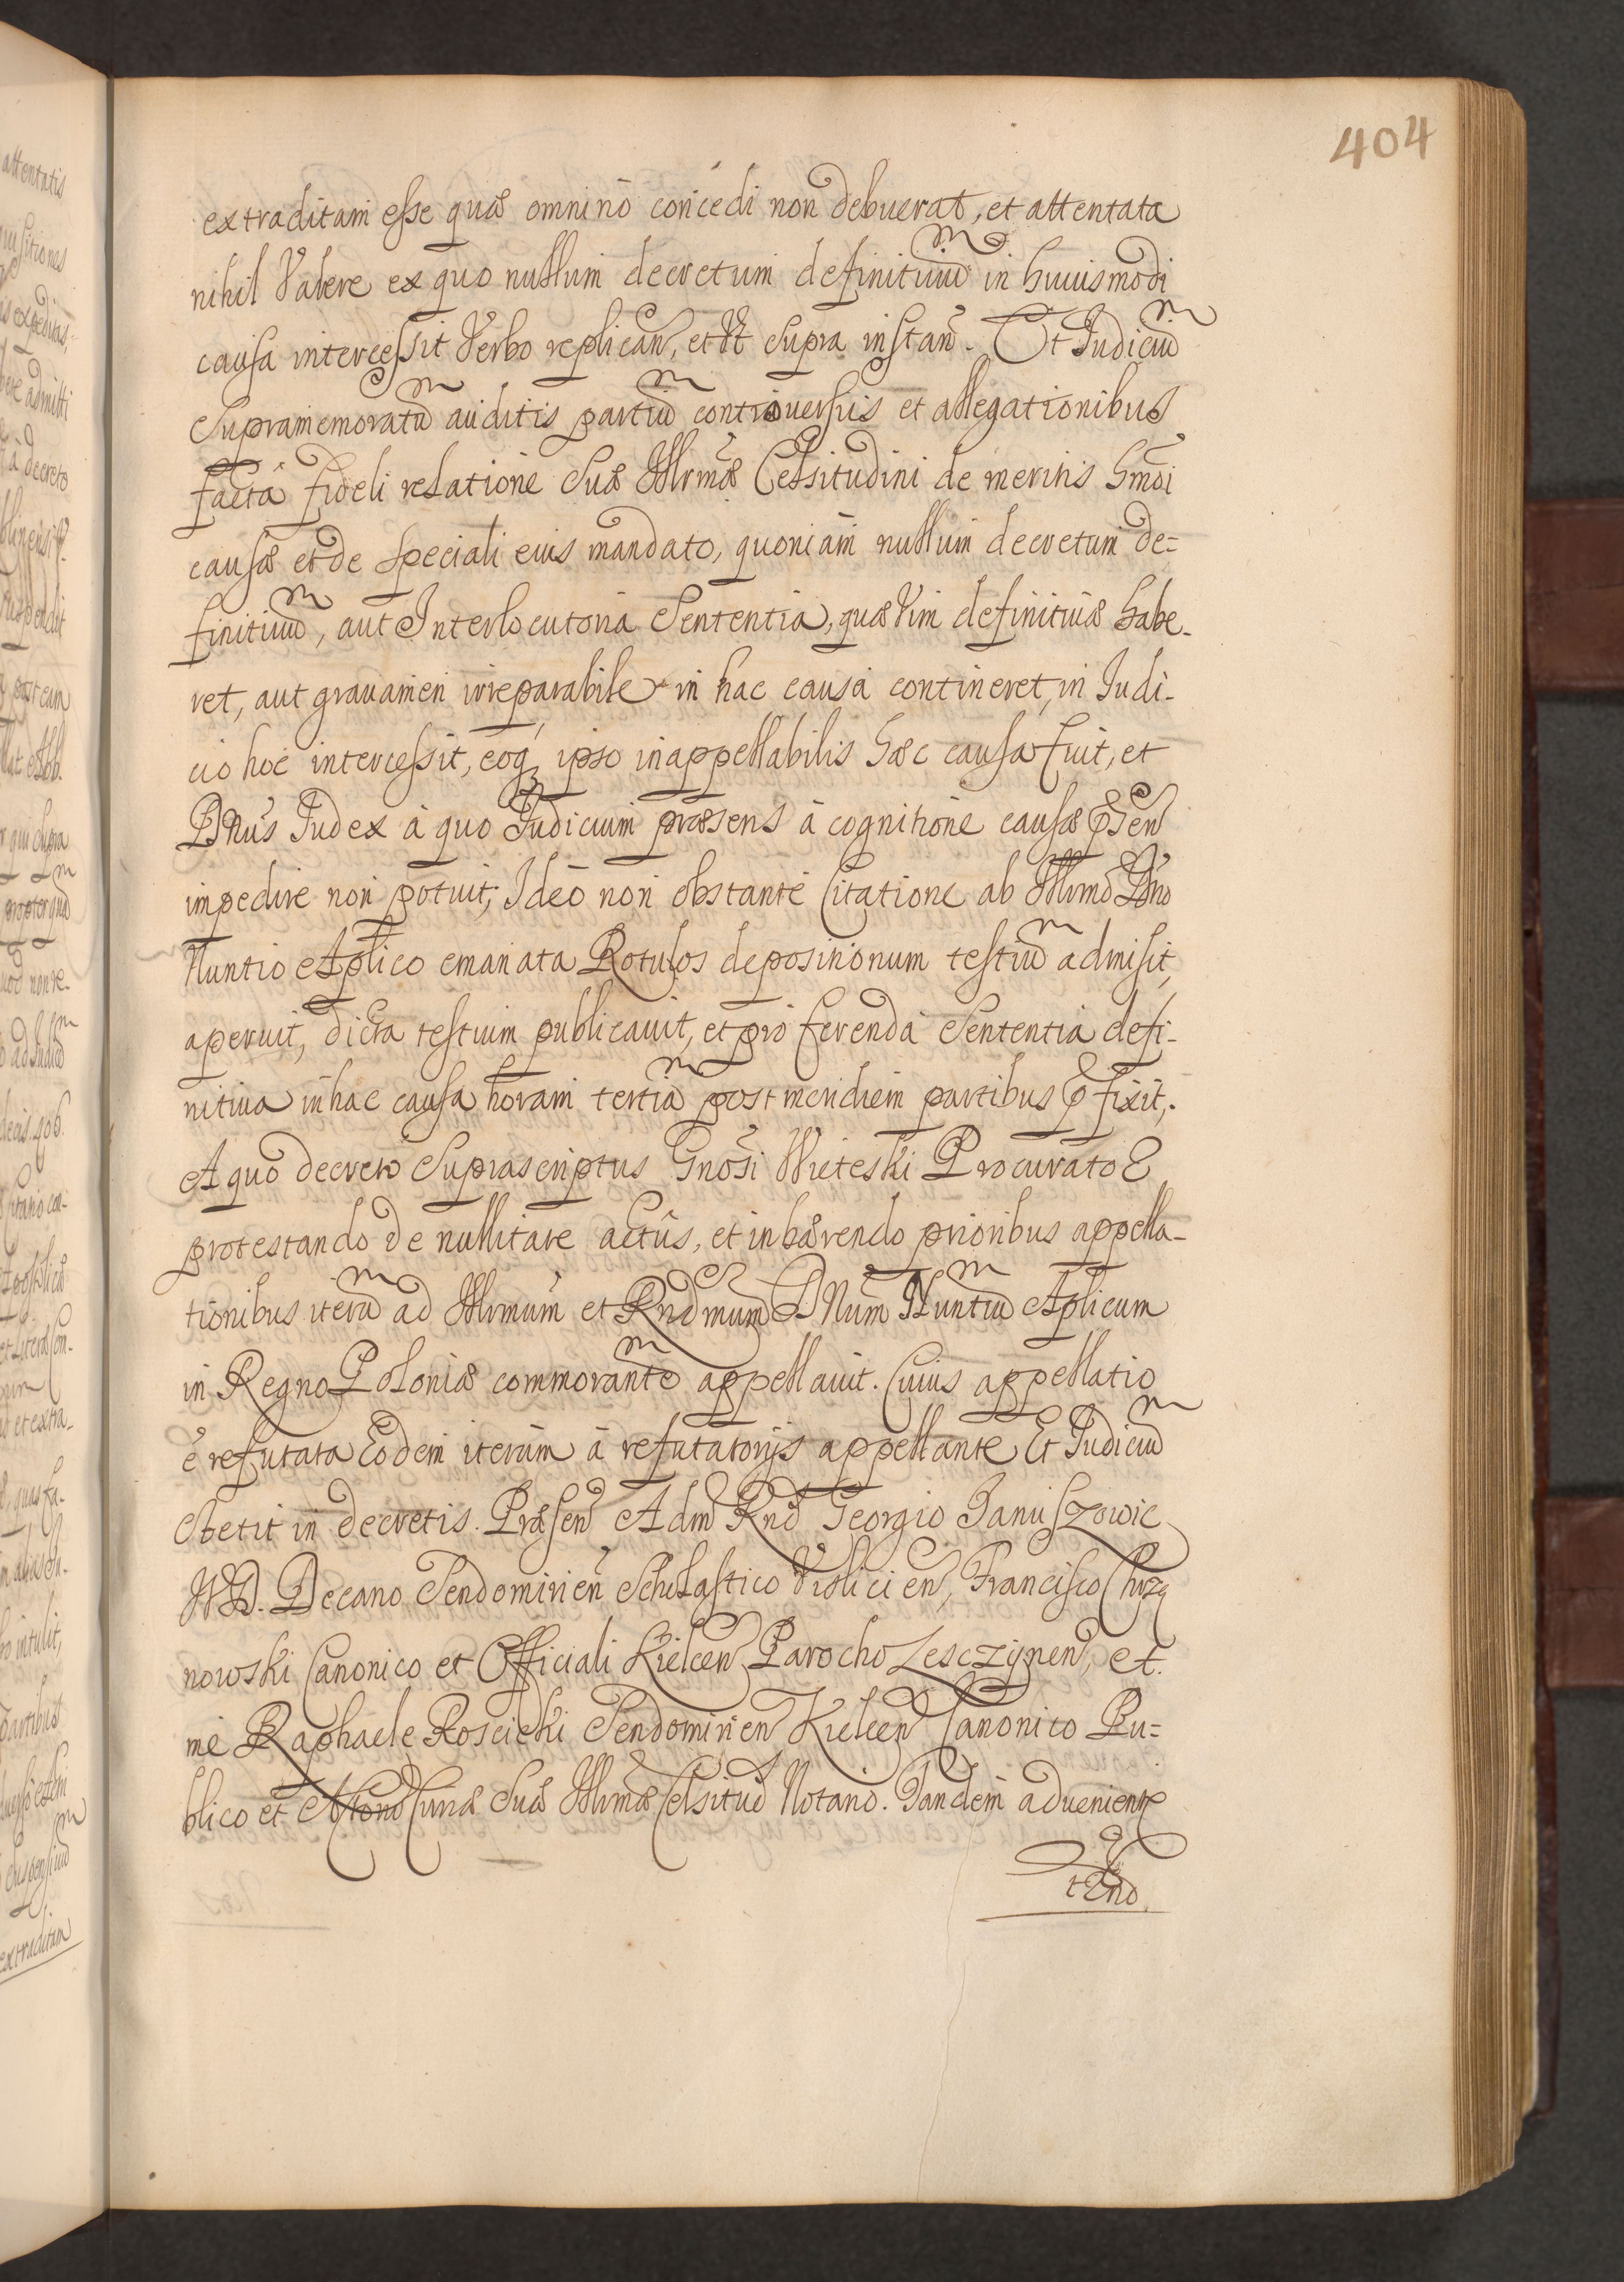 404
extraditam esse quæ omninò concedi non debuerat, et attentata
nihil Valere ex quo nullum decretum definitiuũ in huiusmodi
causa intercessit Verbo replicañ, et Vt supra instañ. Et Iudiciũ
Supramemoratũ auditis partiũ controuersiis et allegationibus
factâ fideli relatione Suæ Illrmæ Celsitudini de meritis hmõi
causæ et de speciali eius mandato, quoniam nullum decretum de=
finitiuũ, aut Interlocutoria Sententia, quæ Vim definitiuæ habe-
ret, aut grauamen irreparabile in hac causa contineret, in Iudi-
cio hoc intercessit, eoq; ipso inappellabilis hæc causa fuit, et
Dnus Iudex à quo Iudicium præsens à cognitione causæ pñ
impedire non potuit; Ideò non obstante Citatione ab Illrmo Dno
Nuntio Aplico emanata Rotulos depositionum testiũ admisit,
aperuit, dicta testium publicauit, et pro ferenda Sententia defi-
nitiua in hac causa horam tertiã post meridiem partibus præfixit,.
A quo decreto Suprascriptus Gnosi Wieteski Procurator
protestando de nullitate actûs, et inhærendo prioribus appella-
tionibus iterũ ad Illrmum et Rndmum Dnum Nuntiũ Aplicum
in Regno Poloniæ commorantẽ appellauit. Cuius appellatio
è refutata Eodem iterùm à refutatorijs appellante Et Iudiciũ
stetit in decretis. Præseñ Adm Rnd Georgio Januszowic
Decano Sendomirień Scholastico Vislicień, Francisco Chrzą
nowski Canonico et Officiali Kielceñ Parocho Lesczyneñ, et
me Raphaele Roscicki Sendomirień Kielceñ Canonico Pu=
blico et Curiæ Suæ Illrmæ Celsitud Notario. Tandem aduenienťe